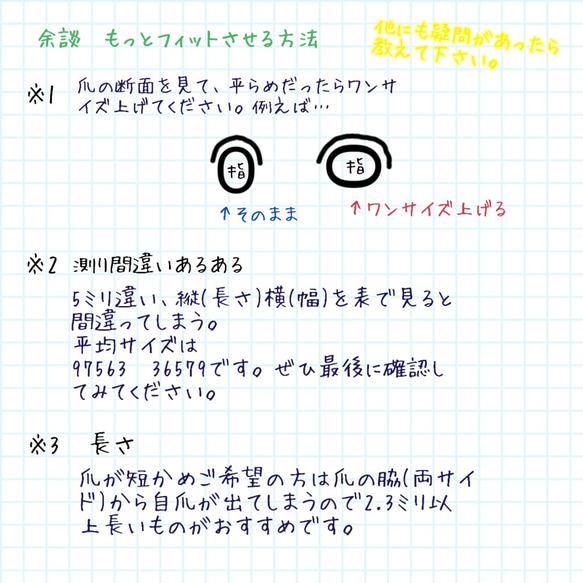 余談　もっとフィットさせる方法
他にも疑問があったら
教えて下さい。
※1　爪の断面を見て、平らめだったらワンサ
イズ上げてください。例えば…
指　指
↑そのまま　↑ワンサイズ上げる
※2　測り間違いあるある
5ミリ違い、縦(長さ)横(幅)を表で見ると
間違ってしまう。
平均サイズは
97563　36579です。ぜひ最後に確認し
てみてください。
※3　長さ
爪が短かめご希望の方は爪の脇(両サイ
ド)から自爪が出てしまうので2.3ミリ以
上長いものがおすすめです。